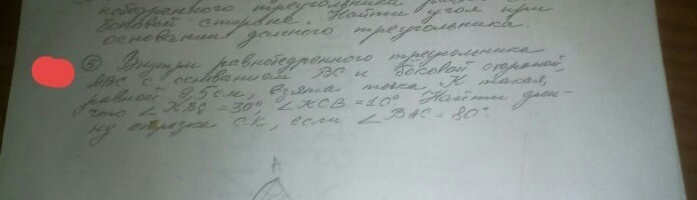 нобедренного треугольника
боковой стороне. Найти угол при
основании данного треугольника.
⑤ Внутри равнобедренного треугольника
ABC с основанием BC и боковой стороной,
равной 9,5 см, взята точка K такая,
что ∠KBC = 30° ∠KCB = 10°. Найти дли-
ну отрезка CK, если ∠BAC = 80°.
A